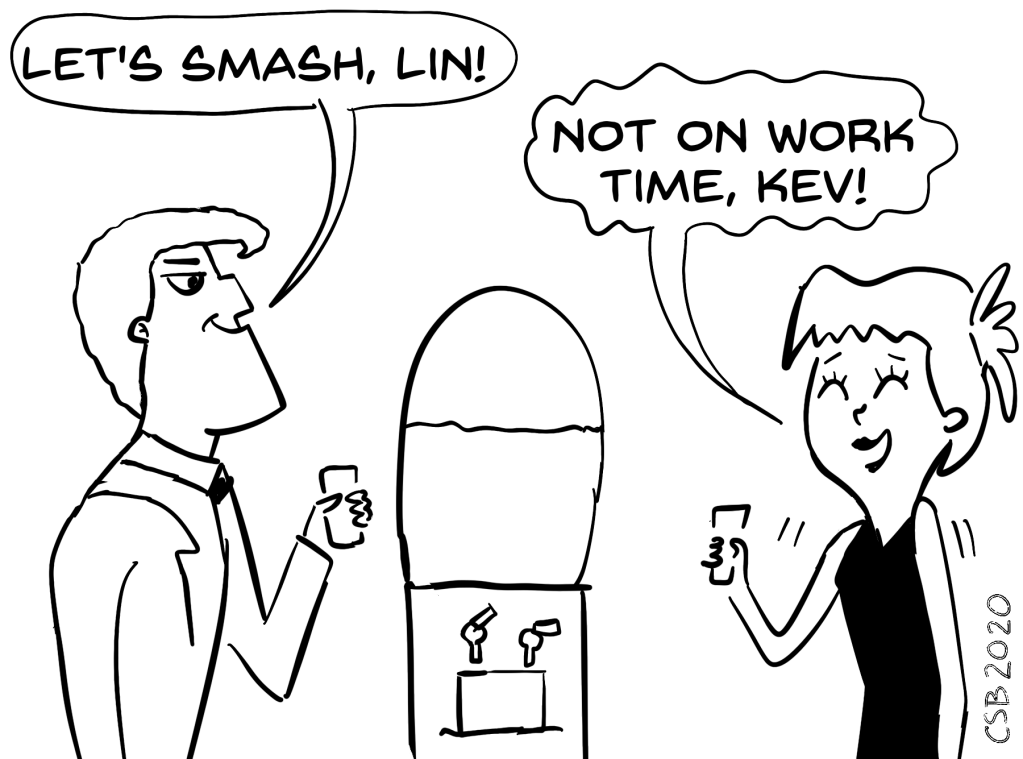 LET'S SMASH, LIN!
NOT ON WORK
TIME, KEV!
CSB 2020